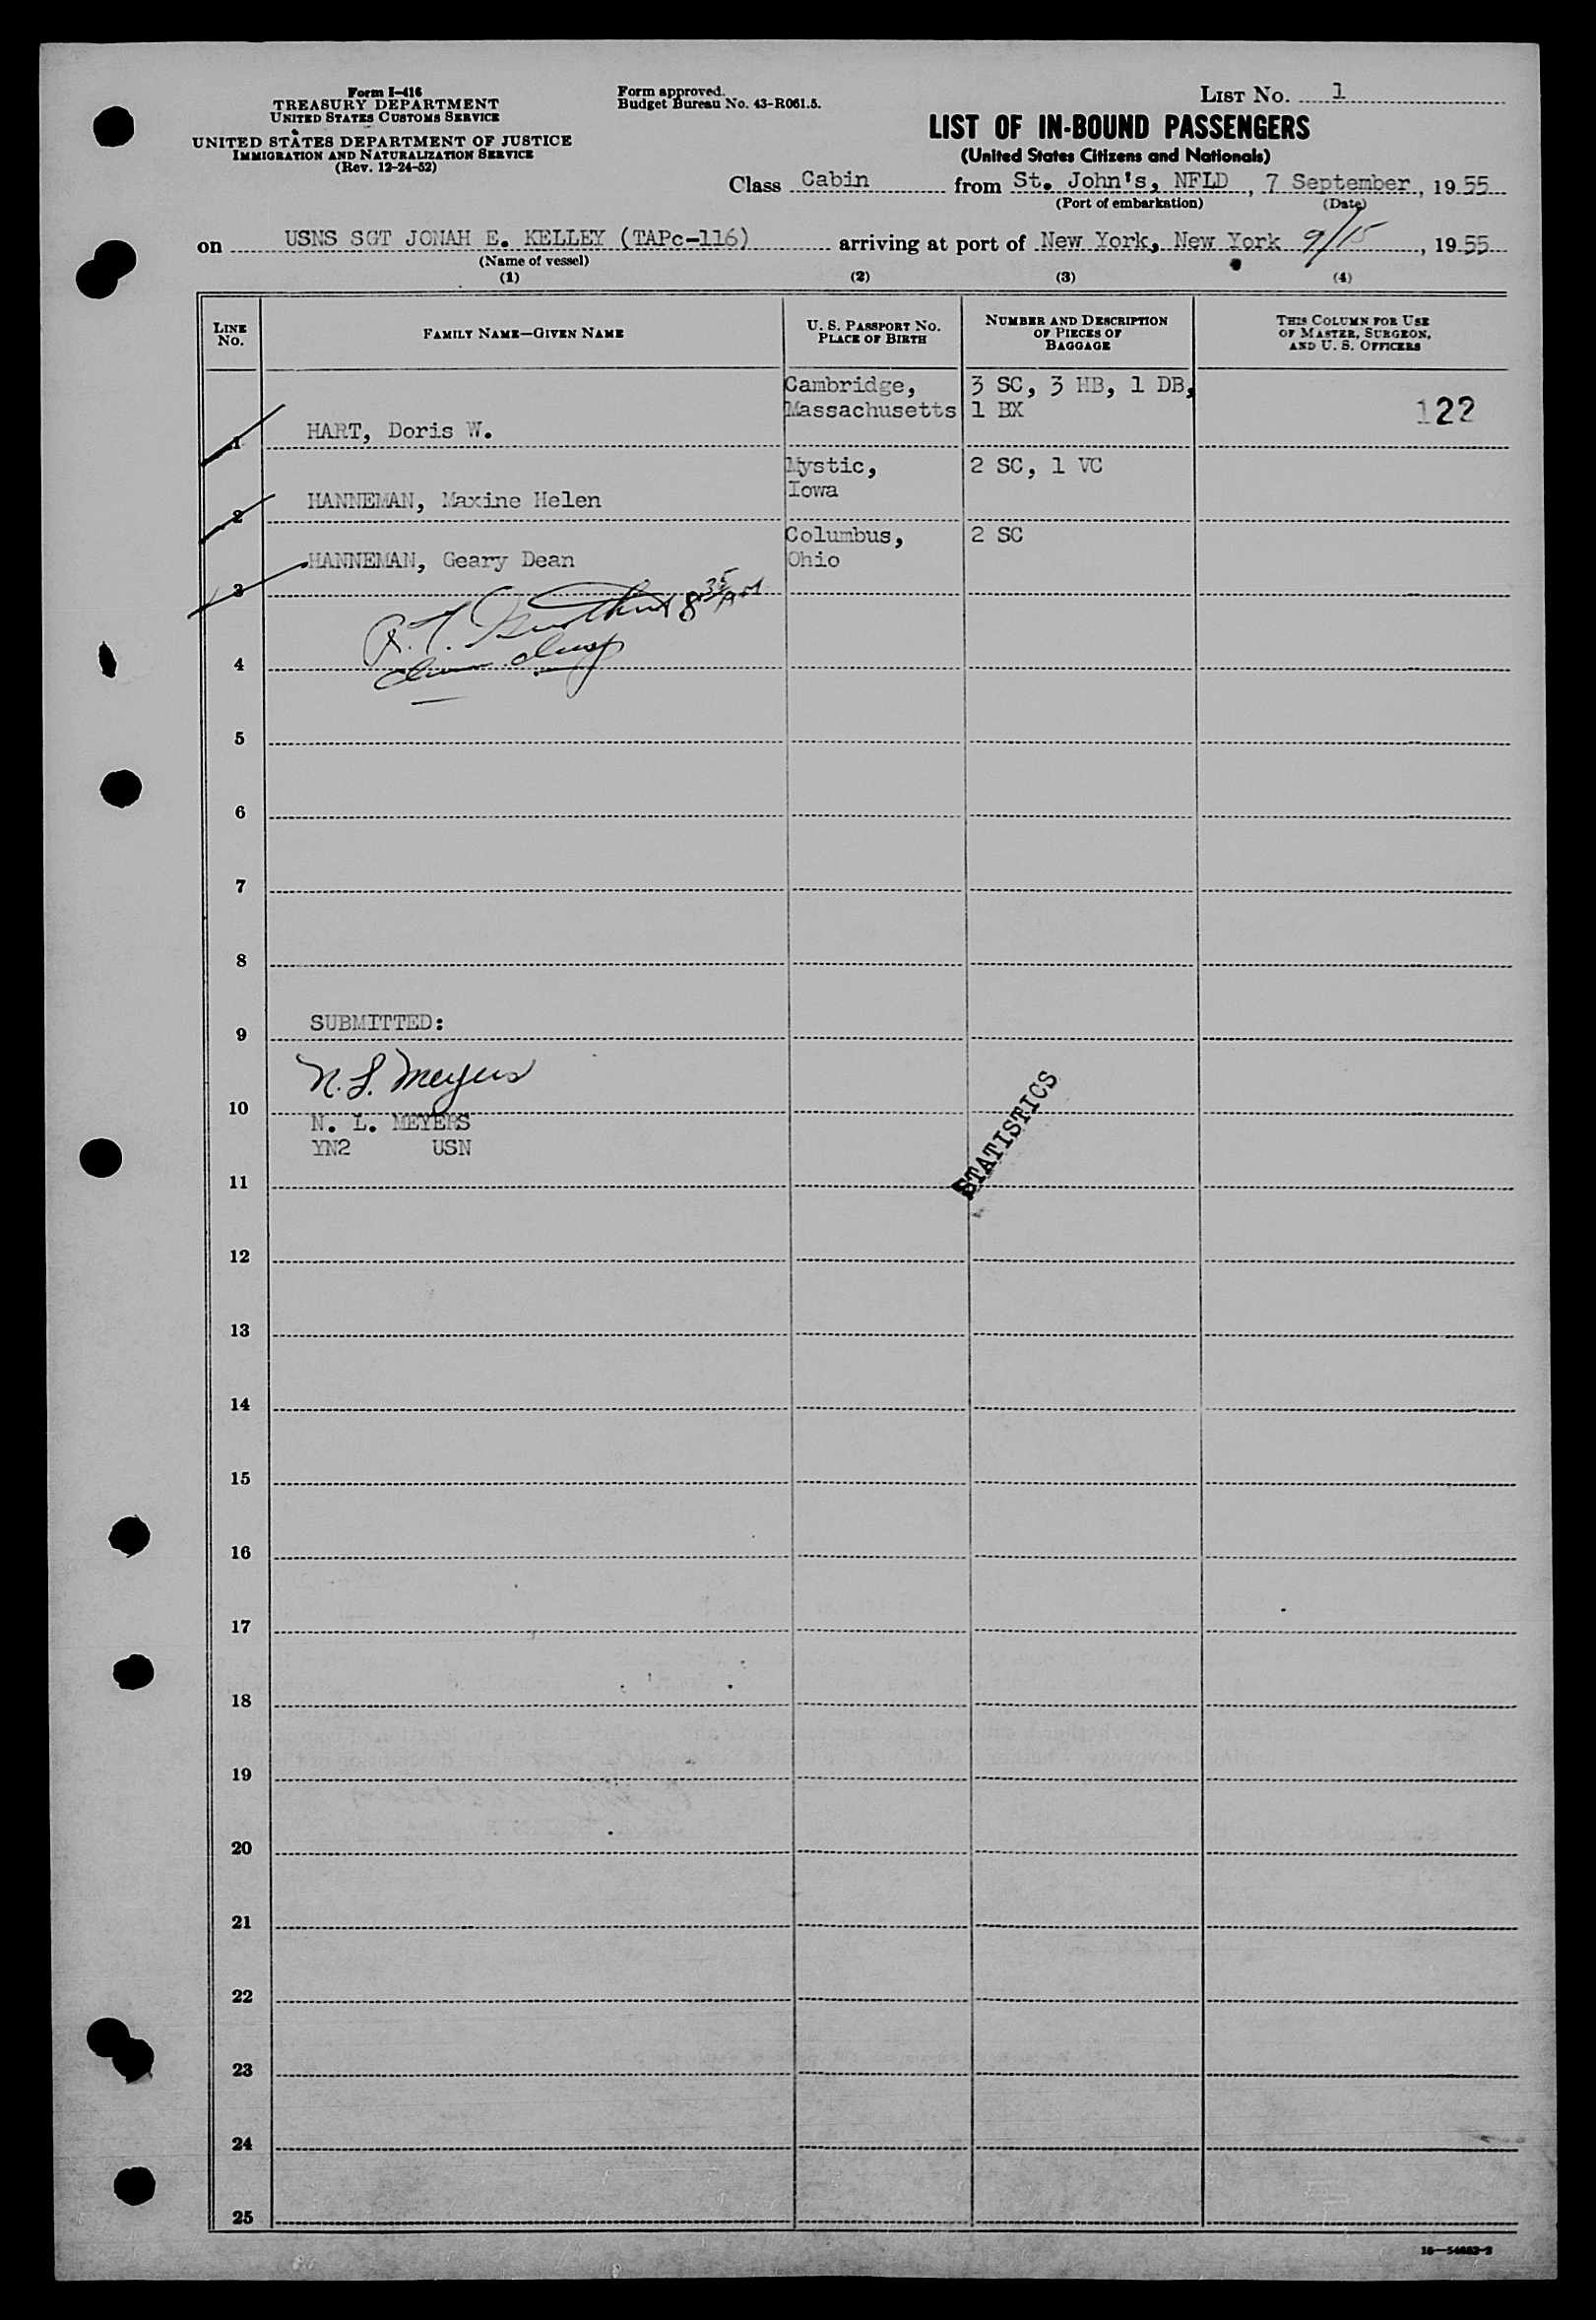 Form I-416
TREASURY DEPARTMENT
UNITED STATES CUSTOMS SERVICE
UNITED STATES DEPARTMENT OF JUSTICE
IMMIGRATION AND NATURALIZATION SERVICE
(Rev. 12-24-52)
Form approved.
Budget Bureau No. 43-R061.5.
LIST NO. 1
LIST OF IN-BOUND PASSENGERS
(United States Citizens and Nationals)
Class Cabin from St. John's, NFLD, 7 September, 1955
(Port of embarkation) (Date)
on USNS SGT JONAH E. KELLEY (TAPc-116) arriving at port of New York, New York 9/15, 1955
(Name of vessel)
(1) (2) (3) (4)
LINE NO.
FAMILY NAME—GIVEN NAME
U. S. PASSPORT NO.
PLACE OF BIRTH
NUMBER AND DESCRIPTION
OF PIECES OF
BAGGAGE
THIS COLUMN FOR USE
OF MASTER, SURGEON,
AND U. S. OFFICERS
Cambridge, 3 SC, 3 HB, 1 DB,
Massachusetts 1 BX 122
1 HART, Doris W.
Mystic, 2 SC, 1 VC
Iowa
2 HANNEMAN, Maxine Helen
Columbus, 2 SC
Ohio
3 HANNEMAN, Geary Dean
8 35 AM
4
5
6
7
8
9 SUBMITTED:
N. L. Meyers
10
N. L. MEYERS
YN2 USN
STATISTICS
11
12
13
14
15
16
17
18
19
20
21
22
23
24
25
16—54463-2